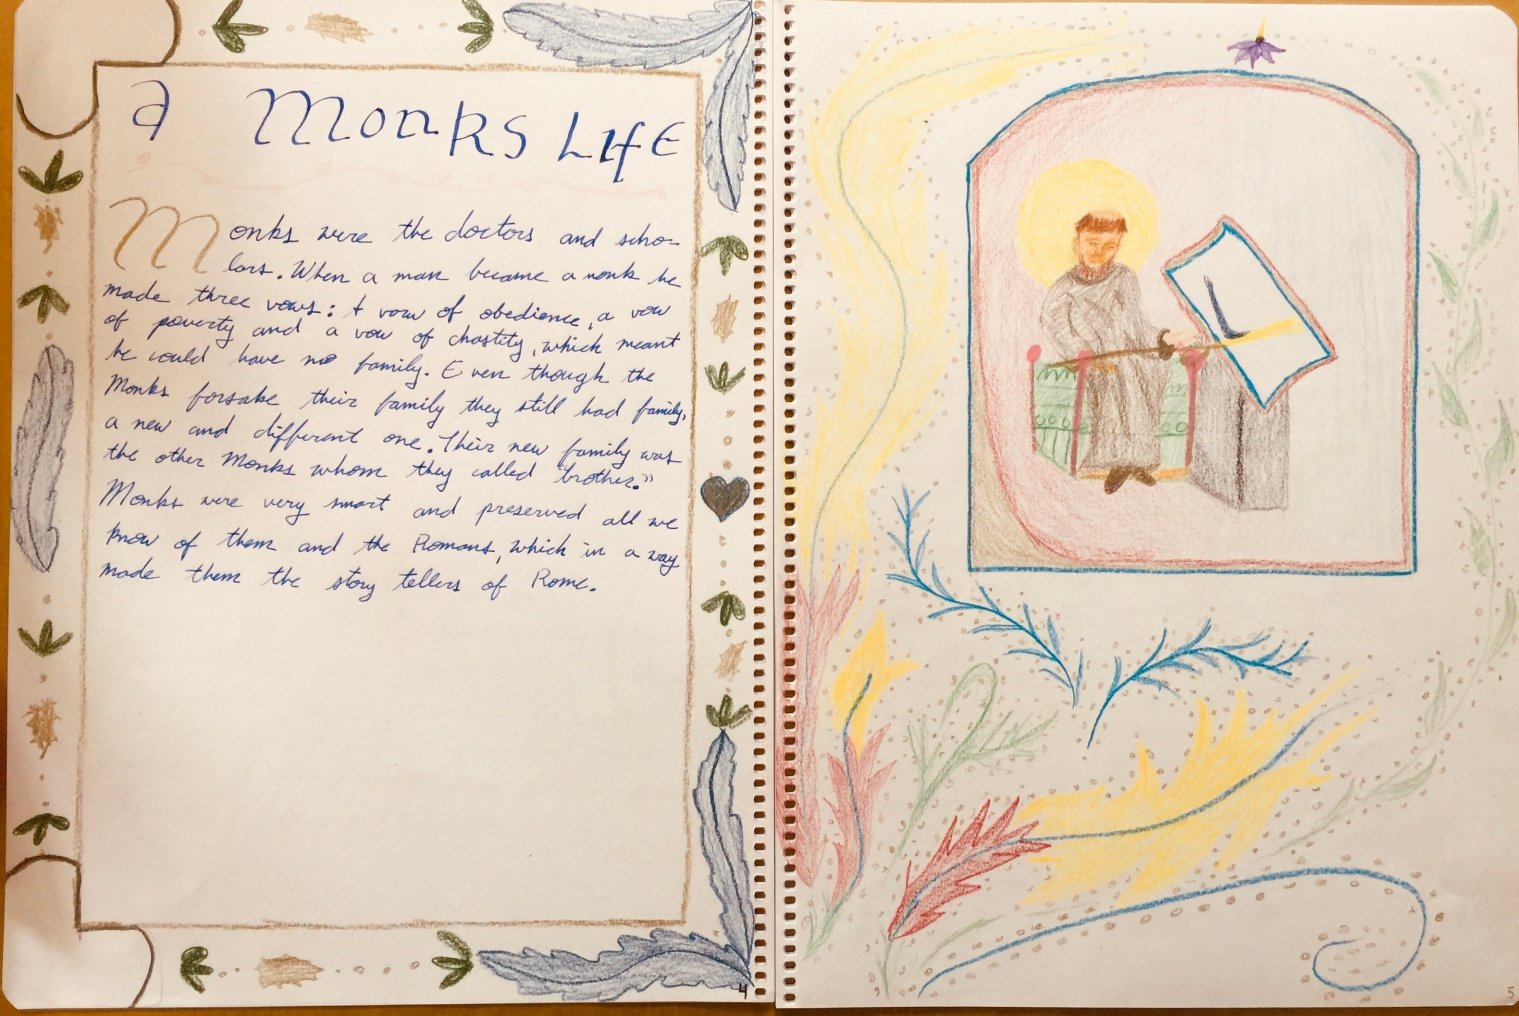 A Monks LIfE
Monks were the doctors and scho-
lars. When a man became a monk he
made three vows: A vow of obedience, a vow
of poverty and a vow of chastity, which meant
he could have no family. Even though the
Monks forsake their family they still had family,
a new and different one. Their new family was
the other Monks whom they called "brother."
Monks were very smart and preserved all we
know of them and the Romans, which in a way
made them the story tellers of Rome.
4
5